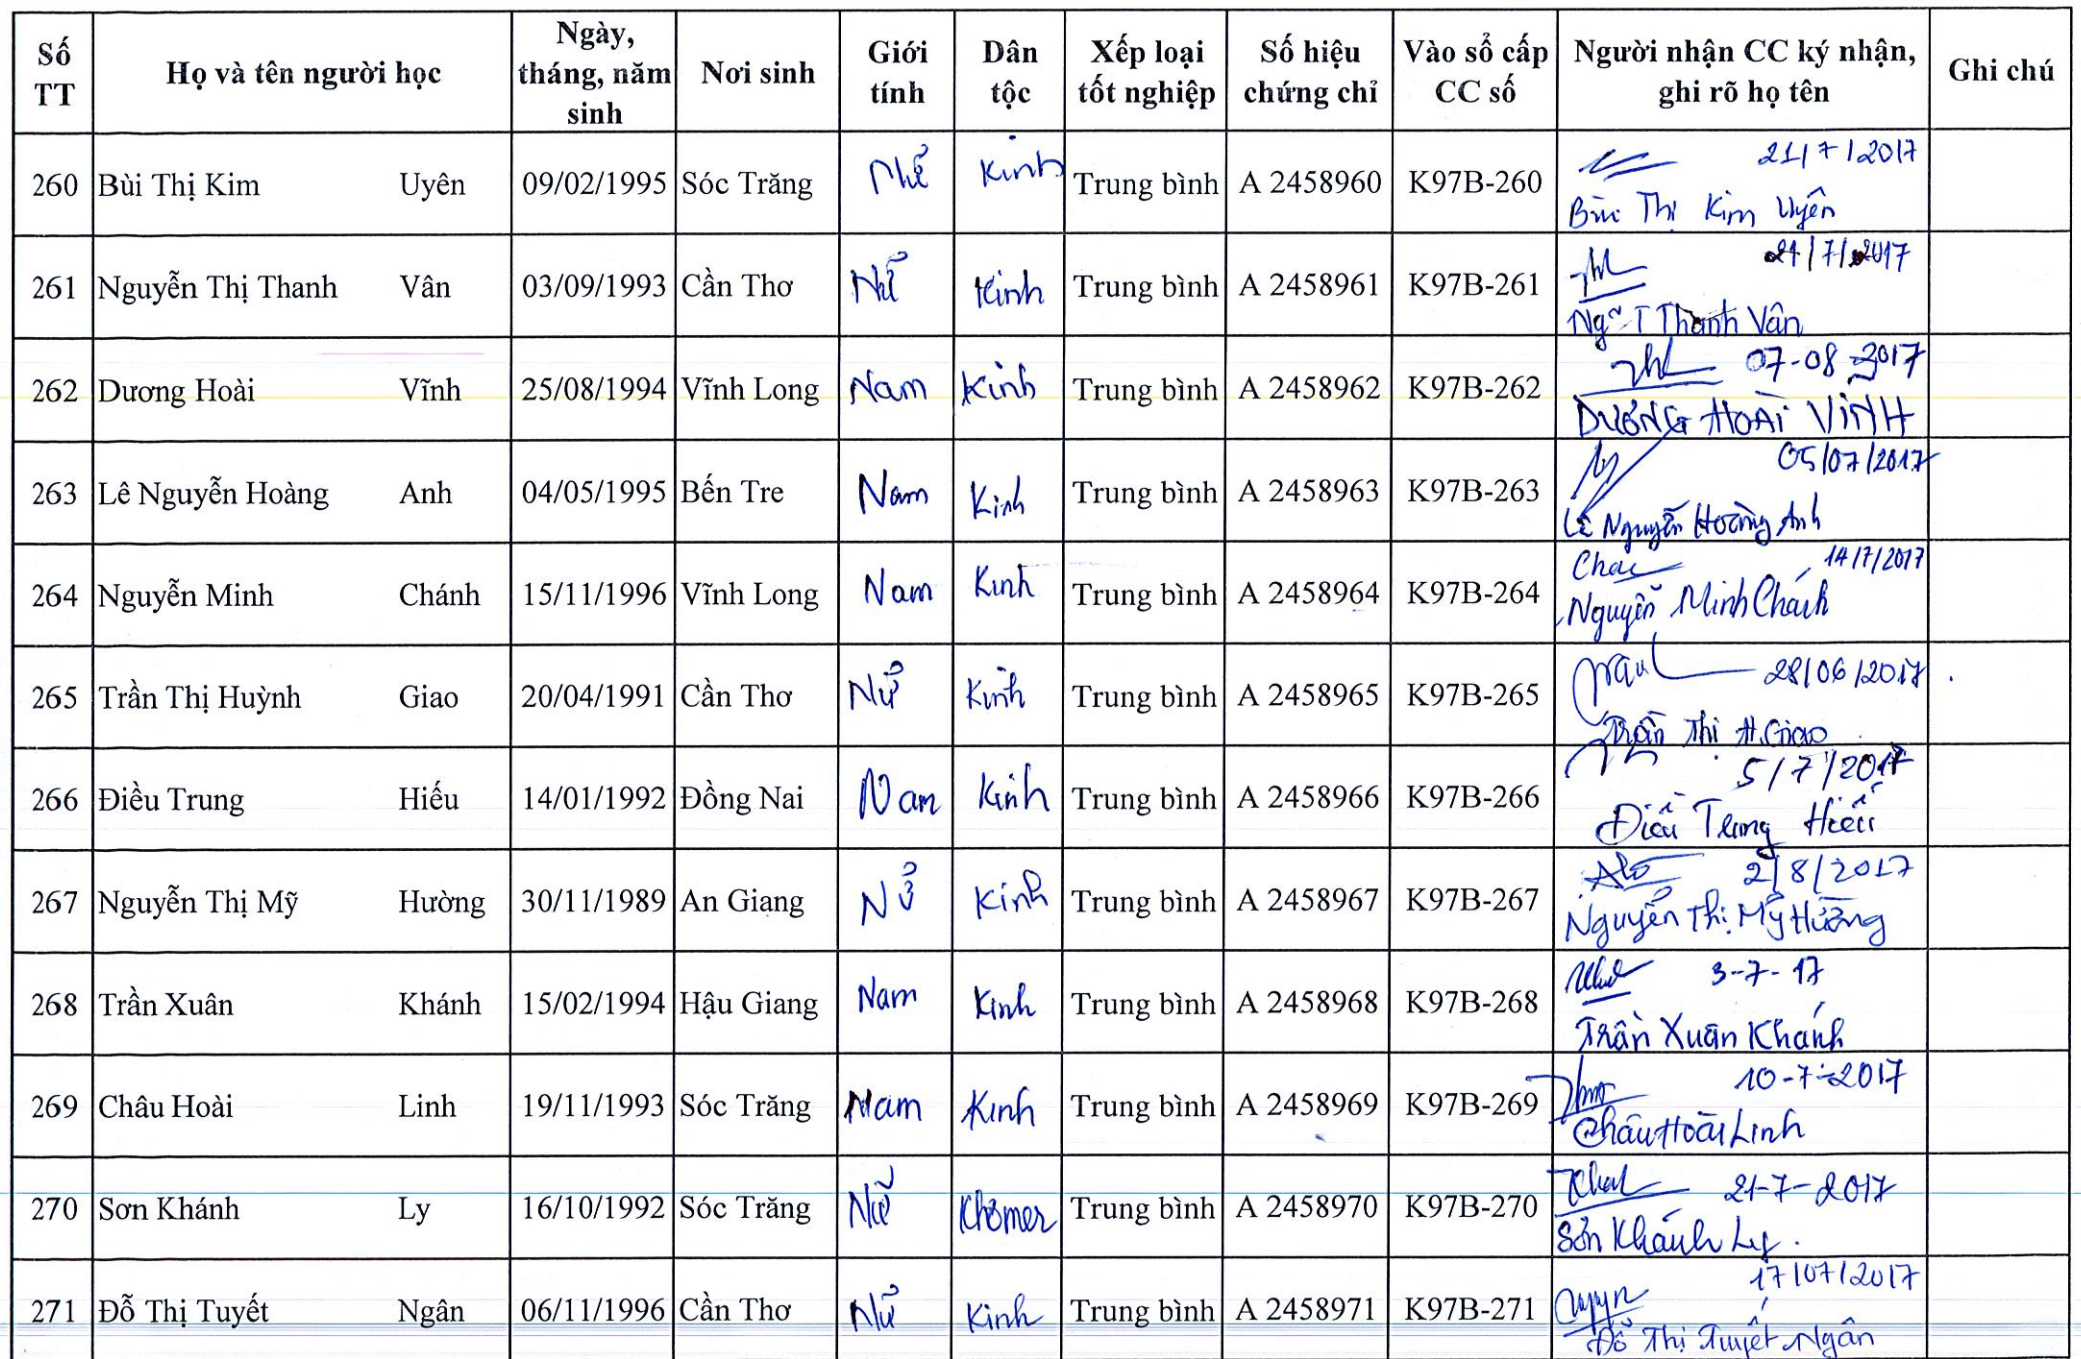 Số TT | Họ và tên người học | Ngày, tháng, năm sinh | Nơi sinh | Giới tính | Dân tộc | Xếp loại tốt nghiệp | Số hiệu chứng chỉ | Vào sổ cấp CC số | Người nhận CC ký nhận, ghi rõ họ tên | Ghi chú
260 | Bùi Thị Kim Uyên | 09/02/1995 | Sóc Trăng | Nữ | Kinh | Trung bình | A 2458960 | K97B-260 | 21/7/2017 Bùi Thị Kim Uyên
261 | Nguyễn Thị Thanh Vân | 03/09/1993 | Cần Thơ | Nữ | Kinh | Trung bình | A 2458961 | K97B-261 | 21/7/2017 Ng~ T Thanh Vân
262 | Dương Hoài Vĩnh | 25/08/1994 | Vĩnh Long | Nam | Kinh | Trung bình | A 2458962 | K97B-262 | 07-08-2017 DƯƠNG HOÀI VĨNH
263 | Lê Nguyễn Hoàng Anh | 04/05/1995 | Bến Tre | Nam | Kinh | Trung bình | A 2458963 | K97B-263 | 05/07/2017 Lê Nguyễn Hoàng Anh
264 | Nguyễn Minh Chánh | 15/11/1996 | Vĩnh Long | Nam | Kinh | Trung bình | A 2458964 | K97B-264 | 14/7/2017 Nguyễn Minh Chánh
265 | Trần Thị Huỳnh Giao | 20/04/1991 | Cần Thơ | Nữ | Kinh | Trung bình | A 2458965 | K97B-265 | 28/06/2017 Trần Thị H.Giao
266 | Điều Trung Hiếu | 14/01/1992 | Đồng Nai | Nam | Kinh | Trung bình | A 2458966 | K97B-266 | 5/7/2017 Điều Trung Hiếu
267 | Nguyễn Thị Mỹ Hường | 30/11/1989 | An Giang | Nữ | Kinh | Trung bình | A 2458967 | K97B-267 | 2/8/2017 Nguyễn Thị Mỹ Hường
268 | Trần Xuân Khánh | 15/02/1994 | Hậu Giang | Nam | Kinh | Trung bình | A 2458968 | K97B-268 | 3-7-17 Trần Xuân Khánh
269 | Châu Hoài Linh | 19/11/1993 | Sóc Trăng | Nam | Kinh | Trung bình | A 2458969 | K97B-269 | 10-7-2017 Châu Hoài Linh
270 | Sơn Khánh Ly | 16/10/1992 | Sóc Trăng | Nữ | Khơmer | Trung bình | A 2458970 | K97B-270 | 21-7-2017 Sơn Khánh Ly.
271 | Đỗ Thị Tuyết Ngân | 06/11/1996 | Cần Thơ | Nữ | Kinh | Trung bình | A 2458971 | K97B-271 | 17/07/2017 Đỗ Thị Tuyết Ngân